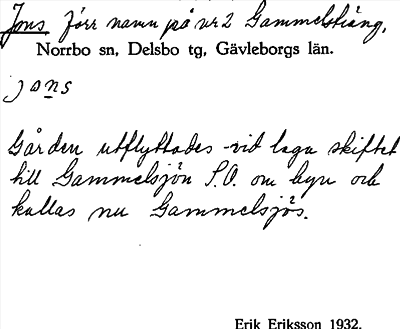 Jons förr namn på nr 2 Gammelsträng,
Norrbo sn, Delsbo tg, Gävleborgs län.
jons
Gården utflyttades vid laga skiftet
till Gammelsjön S.O. om byn och
kallas nu Gammelsjös.
Erik Eriksson 1932.